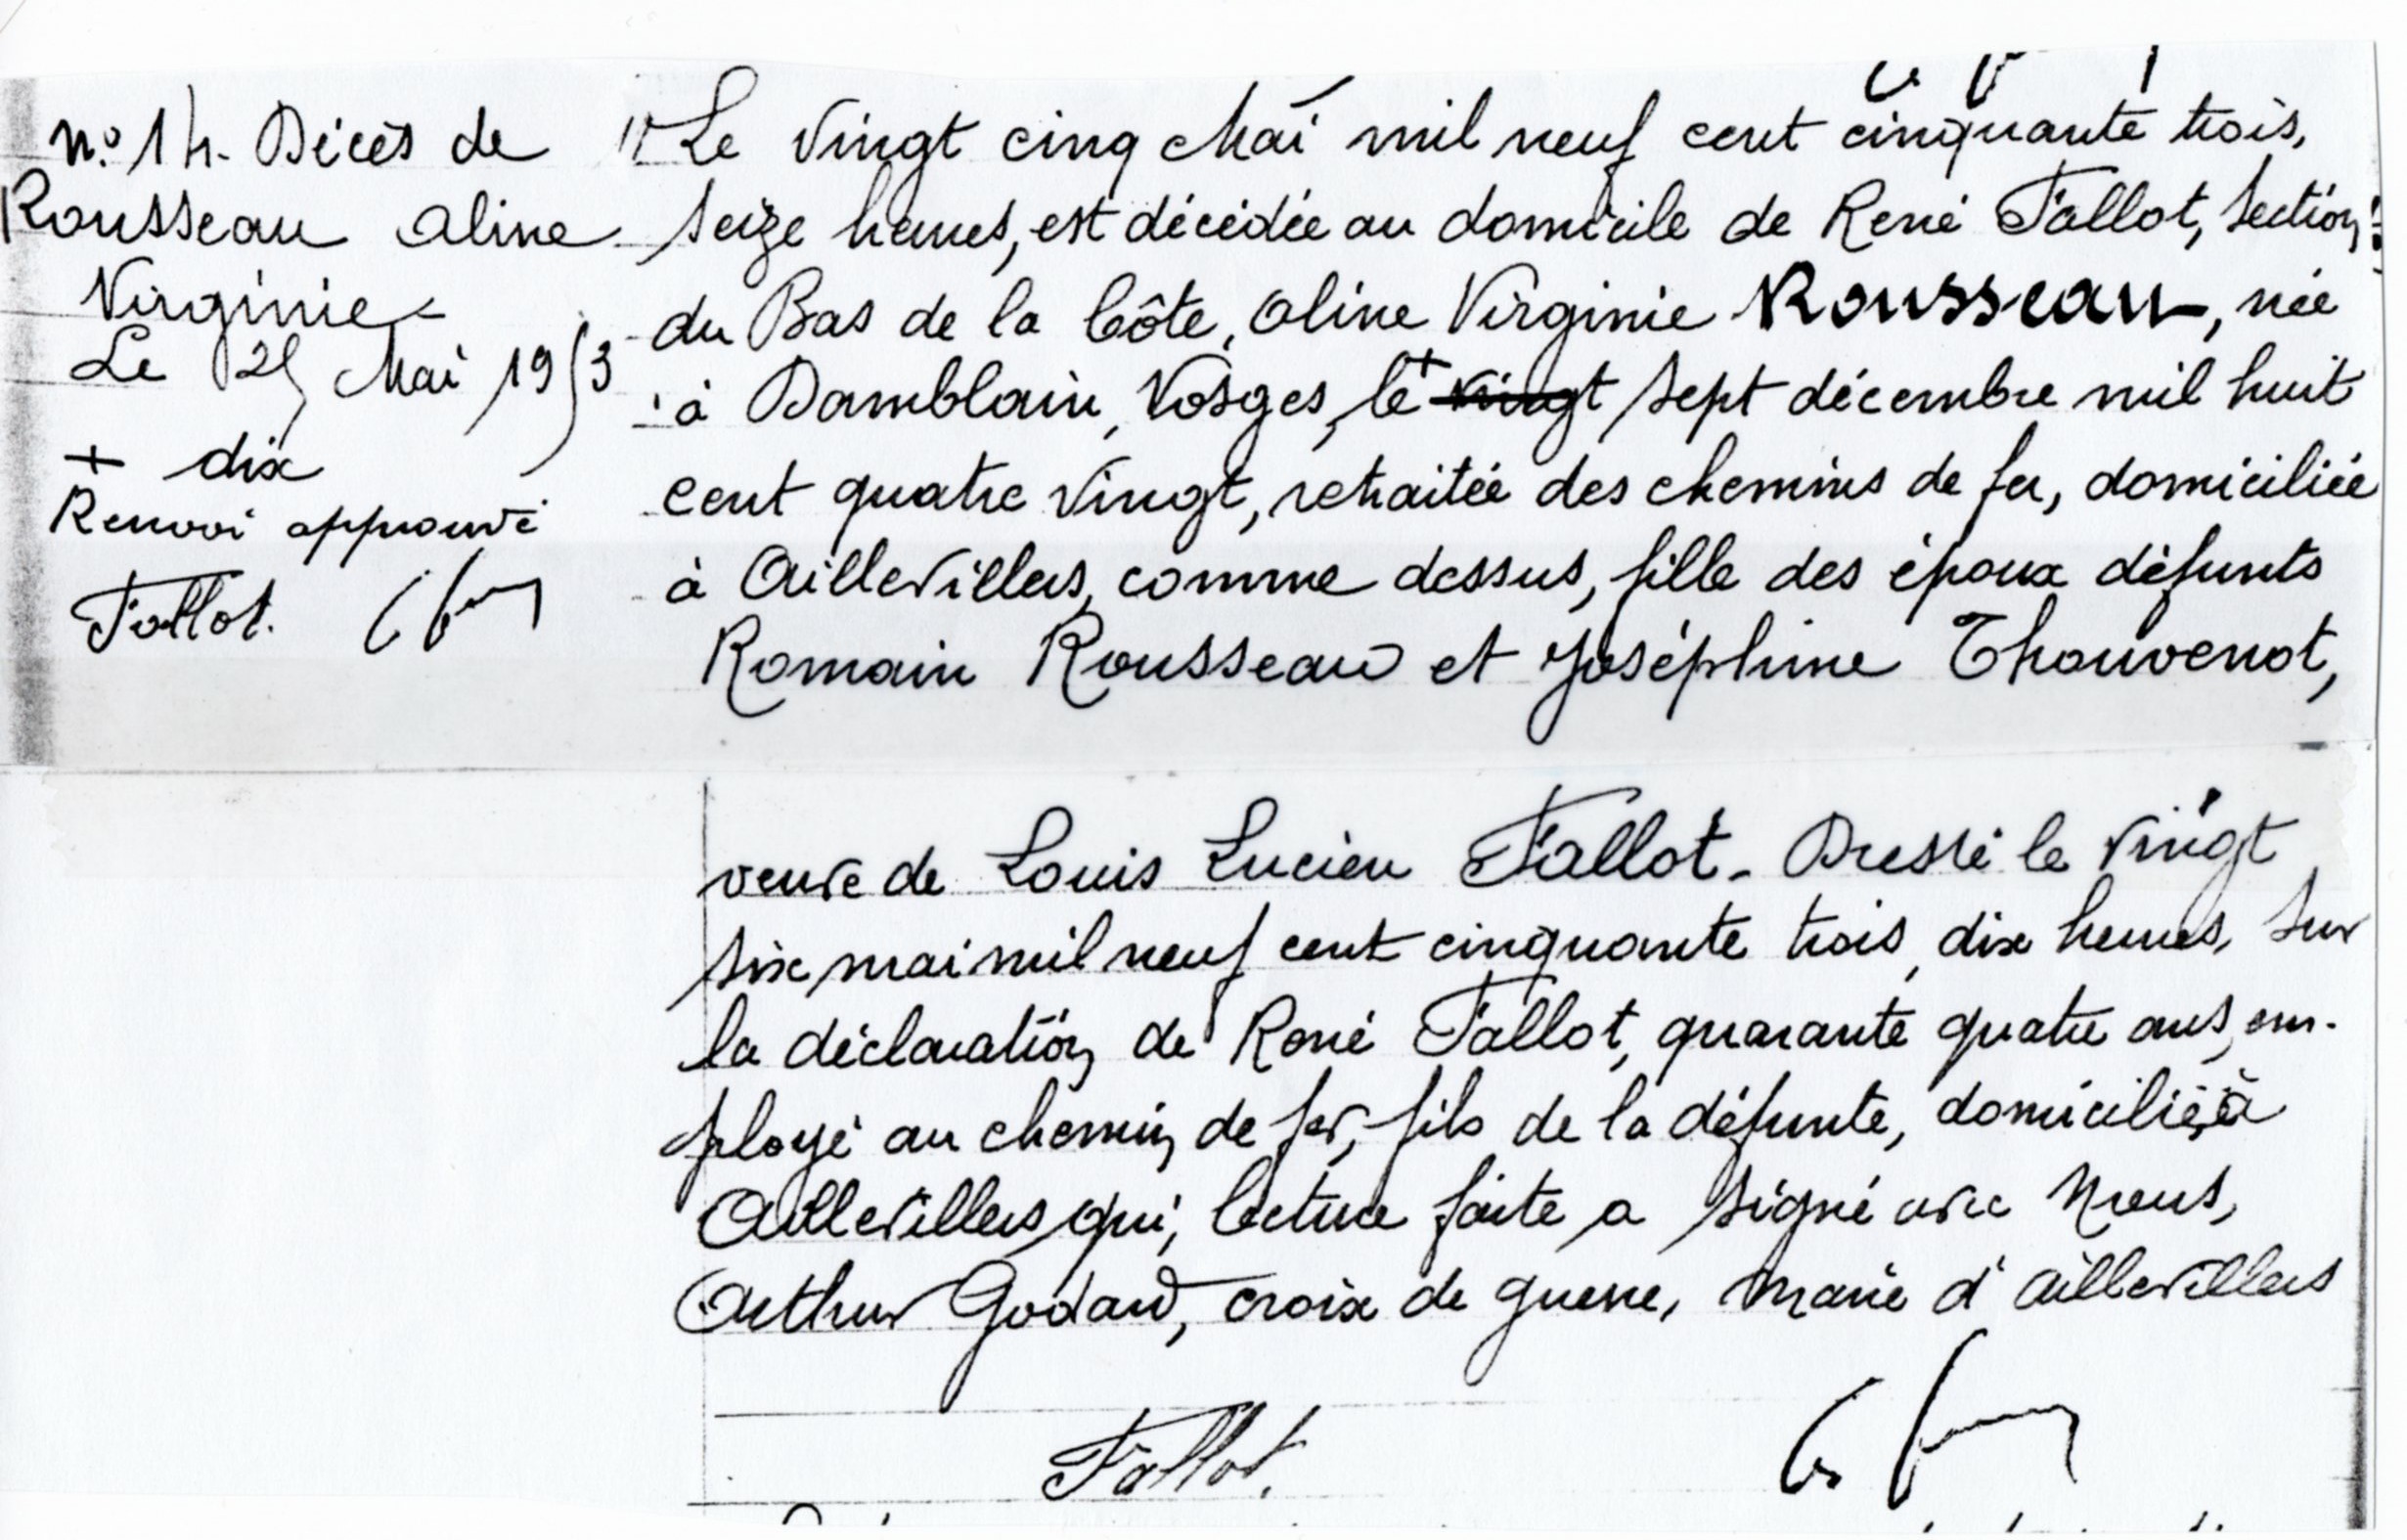 n:º 14. Décès de
Rousseau Aline
Virginie
Le 25 Mai 1953
+ dix
Renvoi approuvé
Fallot.
Le Vingt cinq Mai mil neuf cent cinquante trois,
seize heures, est décédée au domicile de René Fallot, section
du Bas de la Côte, Aline Virginie Rousseau, née
à Damblain, Vosges, le + vingt sept décembre mil huit
cent quatre vingt, retraitée des chemins de fer, domiciliée
à Aillevillers, comme dessus, fille des époux défunts
Romain Rousseau et Joséphine Thouvenot,
veuve de Louis Lucien Fallot. Dressé le vingt
six mai mil neuf cent cinquante trois, dix heures, sur
la déclaration de René Fallot, quarante quatre ans, em-
ployé au chemin de fer, fils de la défunte, domicilié à
Aillevillers qui, lecture faite a signé avec Nous,
Arthur Godard, croix de guerre, Maire d'Aillevillers
Fallot.